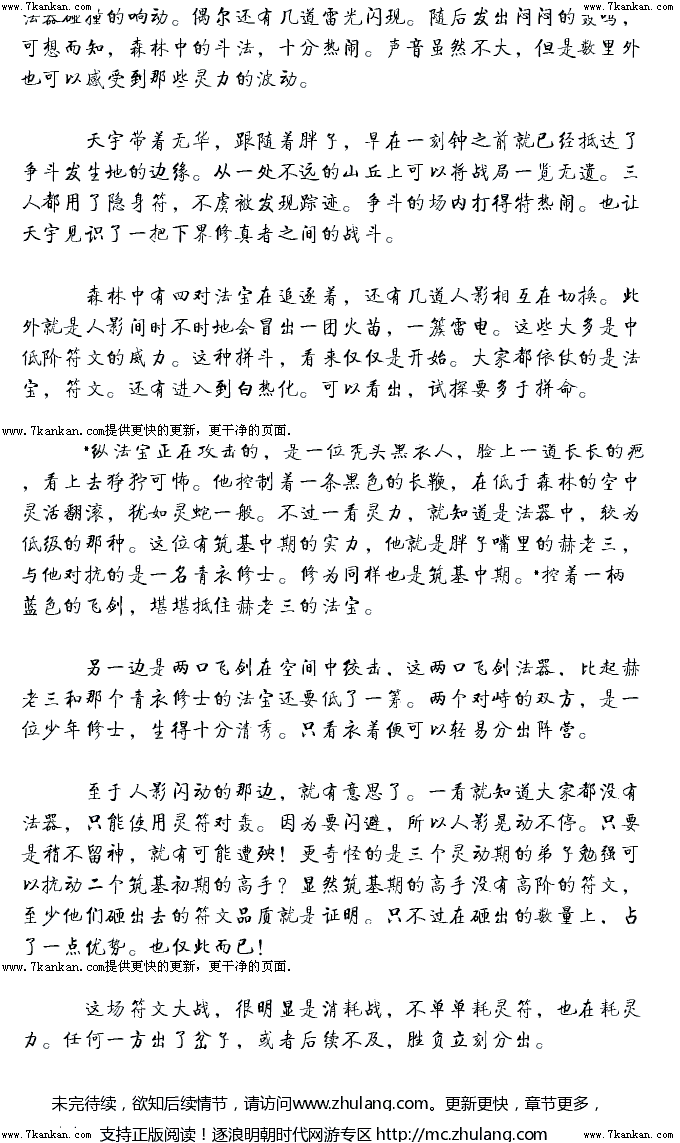 www.7kankan.com www.7kankan.com
法器碰撞的响动。偶尔还有几道雷光闪现。随后发出闷闷的轰鸣，
可想而知，森林中的斗法，十分热闹。声音虽然不大，但是数里外
也可以感受到那些灵力的波动。
天宇带着无华，跟随着胖子，早在一刻钟之前就已经抵达了
争斗发生地的边缘。从一处不远的山丘上可以将战局一览无遗。三
人都用了隐身符，不虞被发现踪迹。争斗的场内打得特热闹。也让
天宇见识了一把下界修真者之间的战斗。
森林中有四对法宝在追逐着，还有几道人影相互在切换。此
外就是人影间时不时地会冒出一团火苗，一簇雷电。这些大多是中
低阶符文的威力。这种拼斗，看来仅仅是开始。大家都依仗的是法
宝，符文。还有进入到白热化。可以看出，试探要多于拼命。
www.7kankan.com提供更快的更新，更干净的页面.
*纵法宝正在攻击的，是一位秃头黑衣人，脸上一道长长的疤
，看上去狰狞可怖。他控制着一条黑色的长鞭，在低于森林的空中
灵活翻滚，犹如灵蛇一般。不过一看灵力，就知道是法器中，较为
低级的那种。这位有筑基中期的实力，他就是胖子嘴里的赫老三，
与他对抗的是一名青衣修士。修为同样也是筑基中期。*控着一柄
蓝色的飞剑，堪堪抵住赫老三的法宝。
另一边是两口飞剑在空间中绞击，这两口飞剑法器，比起赫
老三和那个青衣修士的法宝还要低了一筹。两个对峙的双方，是一
位少年修士，生得十分清秀。只看衣着便可以轻易分出阵营。
至于人影闪动的那边，就有意思了。一看就知道大家都没有
法器，只能使用灵符对轰。因为要闪避，所以人影晃动不停。只要
是稍不留神，就有可能遭殃！更奇怪的是三个灵动期的弟子勉强可
以抗动二个筑基初期的高手？显然筑基期的高手没有高阶的符文，
至少他们砸出去的符文品质就是证明。只不过在砸出的数量上，占
了一点优势。也仅此而已！
www.7kankan.com提供更快的更新，更干净的页面.
这场符文大战，很明显是消耗战，不单单耗灵符，也在耗灵
力。任何一方出了岔子，或者后续不及，胜负立刻分出。
未完待续，欲知后续情节，请访问www.zhulang.com。更新更快，章节更多，
www.7kankan.com 支持正版阅读！逐浪明朝时代网游专区 http://mc.zhulang.com www.7kankan.com